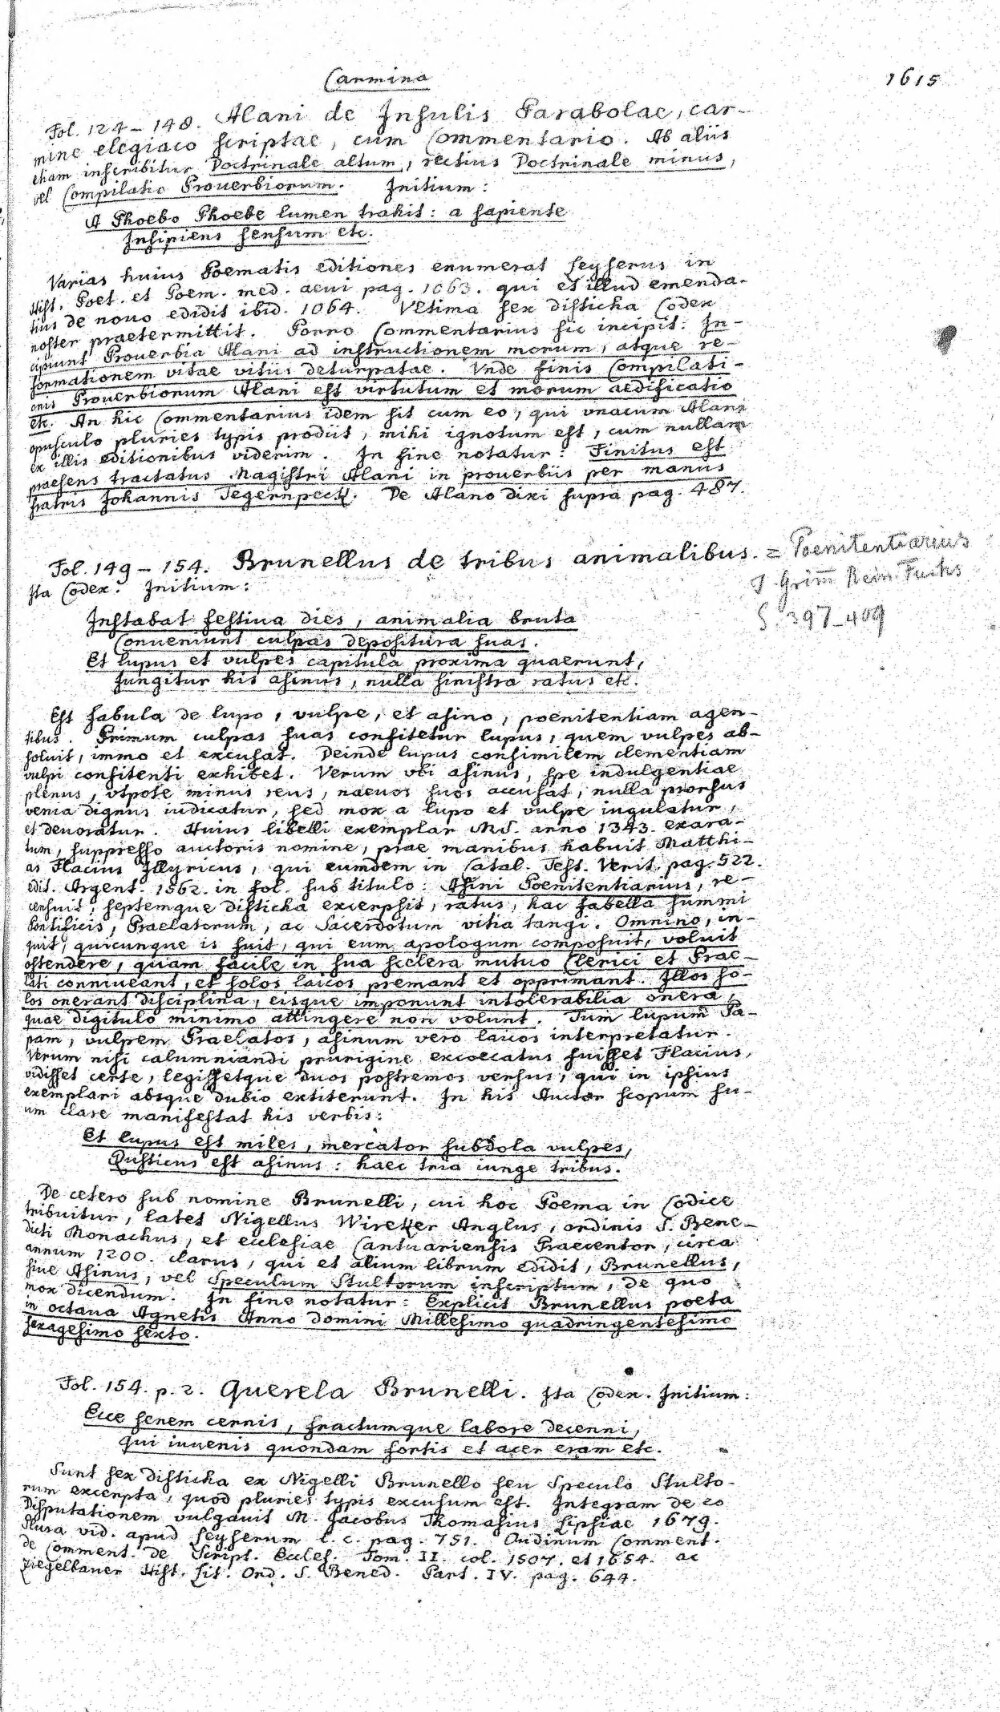 Carmina
1615
Fol. 124 – 148. Alani de Insulis Parabolae, car-
mine elegiaco scriptae, cum Commentario. Ab aliis
etiam inscribitur Doctrinale altum, rectius Doctrinale minus,
vel Compilatio Prouerbiorum. Initium:
A Phoebo Phoebe lumen trahit: a sapiente
Insipiens sensum etc.
Varias huius Poematis editiones enumerat Leyserus in
Hist. Poet. et Poem. med. aeui pag. 1063. qui et illud emenda-
tius de nouo edidit ibid. 1064. Vltima sex disticha Codex
noster praetermittit. Porro Commentarius sic incipit: In-
cipiunt Prouerbia Alani ad instructionem morum, atque re-
formationem vitae vitiis deturpatae. Vnde finis Compilati-
onis Prouerbiorum Alani est virtutum et morum aedificatio
etc. An hic Commentarius idem sit cum eo, qui vnacum Alani
opusculo pluries typis prodiit, mihi ignotum est, cum nullam
ex illis editionibus viderim. In fine notatur: Finitus est
praesens tractatus Magistri Alani in prouerbiis per manus
fratris Johannis Tegernpeck. De Alano dixi supra pag. 487.
Fol. 149 – 154. Brunellus de tribus animalibus. = Poenitentiarius
J. Grimm Rein. Fuchs
S. 397–409
Ita Codex. Initium:
Instabat festiua dies, animalia bruta
Conueniunt culpas depositura suas.
Et lupus et vulpes capitula proxima quaerunt,
Iungitur his asinus, nulla sinistra ratus etc.
Est fabula de lupo, vulpe, et asino, poenitentiam agen-
tibus. Primum culpas suas confitetur lupus, quem vulpes ab-
soluit, immo et excusat. Deinde lupus consimilem clementiam
vulpi confitenti exhibet. Verum vbi asinus, spe indulgentiae
plenus, vtpote minus reus, naeuos suos accusat, nulla prorsus
venia dignus iudicatur, sed mox a lupo et vulpe iugulatur,
et deuoratur. Huius libelli exemplar MS. anno 1343. exara-
tum, suppresso auctoris nomine, prae manibus habuit Matthi-
as Flacius Illyricus, qui eumdem in Catal. Test. Verit. pag. 522.
edit. Argent. 1562. in fol. sub titulo: Asini Poenitentiarius, re-
censuit, septemque disticha excerpsit, ratus, hac fabella summi
Pontificis, Praelatorum, ac Sacerdotum vitia tangi. Omnino, in-
quit, quicunque is fuit, qui eum apologum composuit, voluit
ostendere, quam facile in sua scelera mutuo Clerici et Prae-
lati conniueant, et solos laicos premant et opprimant. Illos so-
los onerant disciplina, eisque imponunt intolerabilia onera,
quae digitulo minimo attingere non volunt. Tum lupum Pa-
pam, vulpem Praelatos, asinum vero laicos interpretatur.
Verum nisi calumniandi prurigine excoecatus fuisset Flacius,
vidisset certe, legissetque duos postremos versus, qui in ipsius
exemplari absque dubio extiterunt. In his Auctor scopum su-
um clare manifestat his verbis:
Et lupus est miles, mercator subdola vulpes,
Rusticus est asinus: haec tria iunge tribus.
De cetero sub nomine Brunelli, cui hoc Poema in Codice
tribuitur, latet Nigellus Wireker Anglus, ordinis S. Bene-
dicti Monachus, et ecclesiae Cantuariensis Praecentor, circa
annum 1200. clarus, qui et alium librum edidit, Brunellus,
siue Asinus, vel Speculum Stultorum inscriptum, de quo
mox dicendum. In fine notatur: Explicit Brunellus poeta
in octaua Agnetis Anno domini Millesimo quadringentesimo
sexagesimo sexto.
Fol. 154. p. 2. Querela Brunelli. Ita Codex. Initium:
Ecce senem cernis, fractumque labore decenni,
Qui iuuenis quondam fortis et acer eram etc.
Sunt sex disticha ex Nigelli Brunello seu Speculo Stulto-
rum excerpta, quod pluries typis excusum est. Integram de eo
Disputationem vulgauit M. Jacobus Thomasius Lipsiae 1679.
Plura vid. apud Leyserum l. c. pag. 751. Oudinum Comment.
de Comment. de Script. Eccles. Tom. II. col. 1507. et 1654. ac
Ziegelbauer Hist. Lit. Ord. S. Bened. Part. IV. pag. 644.